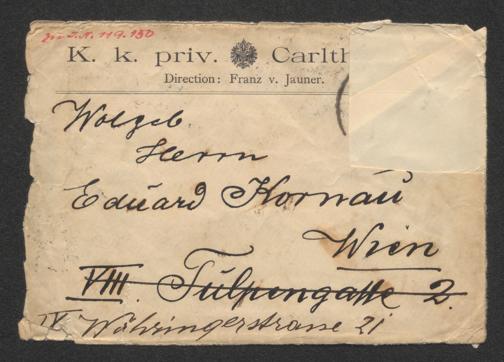 Zu I.N. 119.130
K. k. priv. Carlth
Direction: Franz v. Jauner.
Wolgeb.
Herrn
Eduard Kornau
Wien
VIII. Tulpengasse 2.
IX Währingerstrasse 21